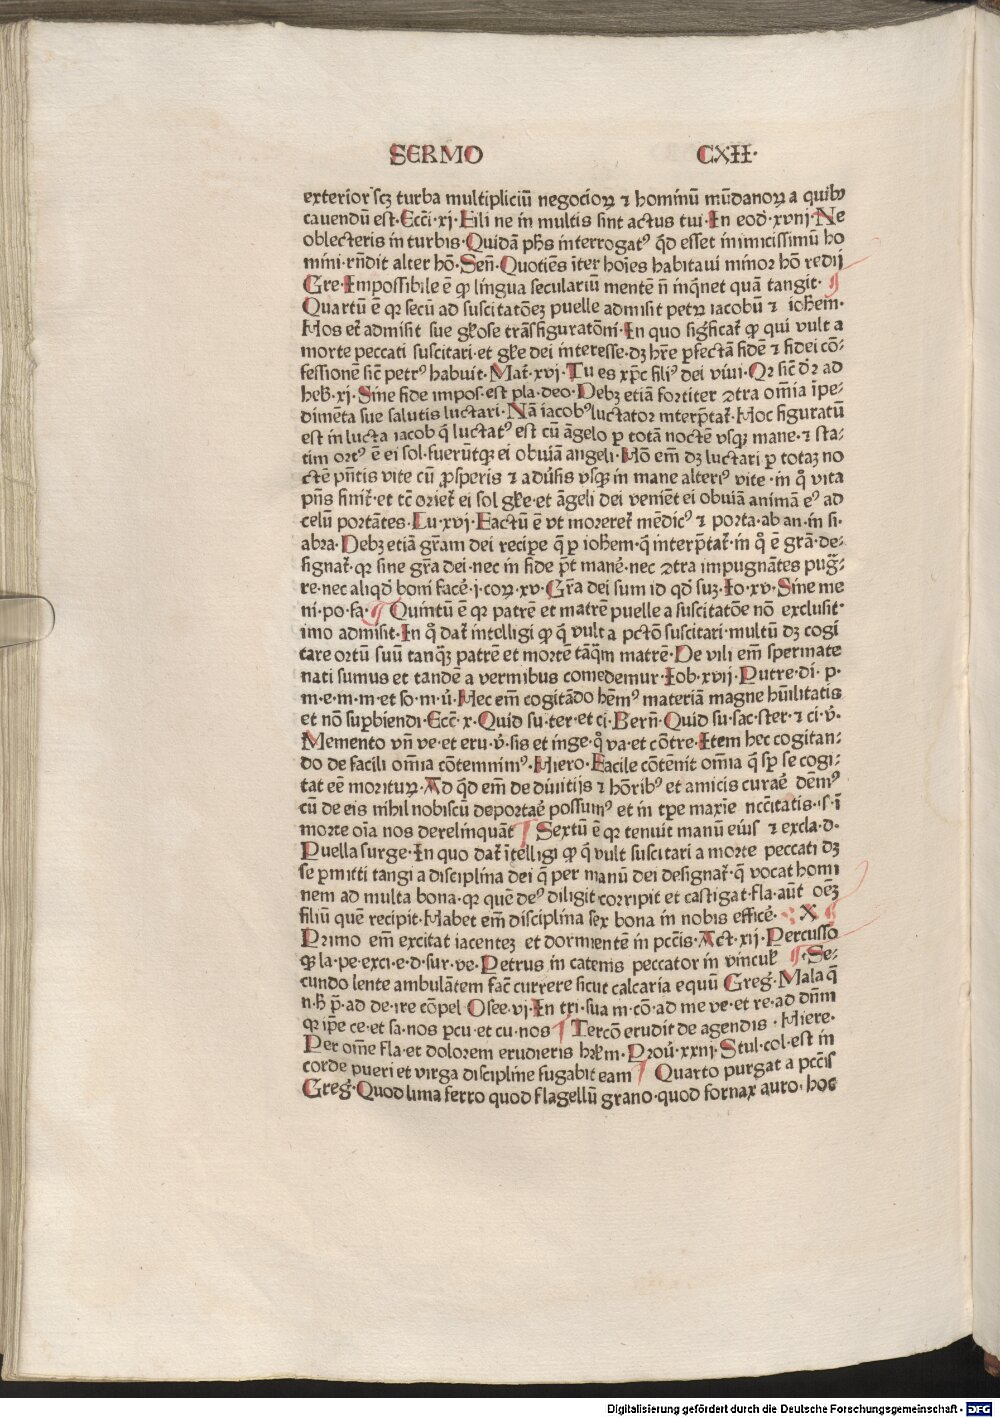 SERMO CXII·
exterior scꝫ turba multipliciū negocioꝝ ⁊ hominū mūdanoꝝ a quibꝰ
cauendū est·Ecci·xj·Fili ne in multis sint actus tui·In eod̄·xviij·Ne
oblecteris in turbis·Quidā ph̄s interrogatꝰ qd̄ esset inimicissimū ho
mini·rn̄dit alter hō·Sen̄·Quotiēs īter hoīes habitaui minor hō redij
Gre·Impossibile ē ꝙ lingua seculariū mentē n̄ inq̄net quā tangit· ¶
Quartū ē ꝙ secū ad suscitatōeꝫ puelle admisit petꝝ iacobū ⁊ ioh̄em·
Hos et̄ admisit sue gl̄ose trāsfiguratōni·In quo sigficat̄ ꝙ qui vult a
morte peccati suscitari·et gl̄e dei interesse·dꝫ hr̄e ꝑfectā fidē ⁊ fidei cō-
fessionē sic̄ petrꝰ habuit·Mat̄·xvj·Tu es xp̄c filiꝰ dei viui·Qꝛ sic̄ dr̄ ad
heb̄·xj·Sine fide impos·est pla·deo·Debꝫ etiā fortiter ꝯtra om̄ia īpe-
dimēta sue salutis luctari·Nā iacobꝰ luctator interp̄tat̄·Hoc figuratū
est in lucta iacob q̄ luctatꝰ est cū āgelo ꝑ totā noctē vsqꝫ mane·⁊ sta-
tim ortꝰ ē ei sol·fuerūtqꝫ ei obuiā angeli·Hō em̄ dꝫ luctari ꝑ totaꝫ no
ctē pn̄tis vite cū ꝓsperis ⁊ adūsis vsqꝫ in mane alteriꝰ vite·in qͦ vita
pn̄s finit̄·et tc̄ oriet̄ ei sol gl̄e·et āgeli dei veniēt ei obuiā animā eꝰ ad
celū portātes·Lu·xvj·Factū ē vt moreret̄ mēdicꝰ ⁊ porta·ab an·in si·
abra·Debꝫ etiā gr̄am dei recipe q̄ ꝑ ioh̄em·q̄ interp̄tat̄·in qͦ ē gr̄a·de-
signat̄·qꝛ sine gr̄a dei·nec in fide p̄t mane᷑·nec ꝯtra impugnātes pug̅-
re·nec aliqd̄ boni face᷑·j·coꝝ·xv·Gr̄a dei sum id qd̄ suꝫ·Io·xv·Sine me
ni·po·fa·¶ Quintū ē qꝛ patrē et matrē puelle a suscitatōe nō exclusit·
imo admisit·In qͦ dat̄ intelligi ꝙ q̄ vult a pctō suscitari·multū dꝫ cogi
tare ortū suū tanqͣꝫ patrē et mortē tāqͣm matrē·De vili em̄ spermate
nati sumus et tandē a vermibus comedemur·Iob·xvij·Putre·di·p·
m·e·m·m·et so·m·v̄·Hec em̄ cogitādo hēmꝰ materiā magne hūilitatis
et nō suꝑbiendi·Ecc̄·x·Quid su·ter·et ci·Bern̄·Quid su·sac·ster·⁊ ci·v̄·
Memento vn̄ ve·et eru·v̄·sis et inge·qͦ va·et cōtre·Item hec cogitan-
do de facili om̄ia cōtemnimꝰ·Hiero·Facile cōtēnit om̄ia q̄ sp̄ se cogi-
tat eē morituꝝ·Ad qd̄ em̄ de diuitijs ⁊ hōribꝰ et amicis curae᷑ dēmꝰ
cū de eis nihil nobiscū deportae᷑ possumꝰ et in tp̄e maxīe nccītatis·s·ī
morte oīa nos derelinquāt ¶ Sextū ē qꝛ tenuit manū eius ⁊ excla·d·
Puella surge·In quo dat̄ ītelligi ꝙ q̄ vult suscitari a morte peccati dꝫ
se ꝑmitti tangi a disciplina dei q̄ per manū dei designat̄·q̄ vocat homi
nem ad multa bona·qꝛ quē deꝰ diligit corripit et castigat·fla·aūt oēꝫ
filiū quē recipit·Habet em̄ disciplina sex bona in nobis effice᷑· X ¶
Primo em̄ excitat iacenteꝫ et dormientē in pcc̄is·Act·xij·Percusso
qꝫ la·pe·exci·e·d·sur·ve·Petrus in catenis peccator in vincul̄ ¶·Se-
cundo lente ambulātem fac̄ currere sicut calcaria equū Greg̅·Mala q̄
n·h̄ p̄·ad de·ire cōpel Osee·vj·In tri·sua m·cō·ad me ve·et re·ad dn̄m
qꝛ ip̄e ce·et sa·nos ꝑcu·et cu·nos ¶ Tercō erudit de agendis·Hiere·
Per om̄e fla·et dolorem erudieris hrl̄m·Prou̅·xxij·Stul·col·est in
corde pueri et virga discipline fugabit eam ¶ Quarto purgat a pcc̄is
Greg̅·Quod lima ferro quod flagellū grano·quod fornax auro·hoc
Digitalisierung gefördert durch die Deutsche Forschungsgemeinschaft - DFG